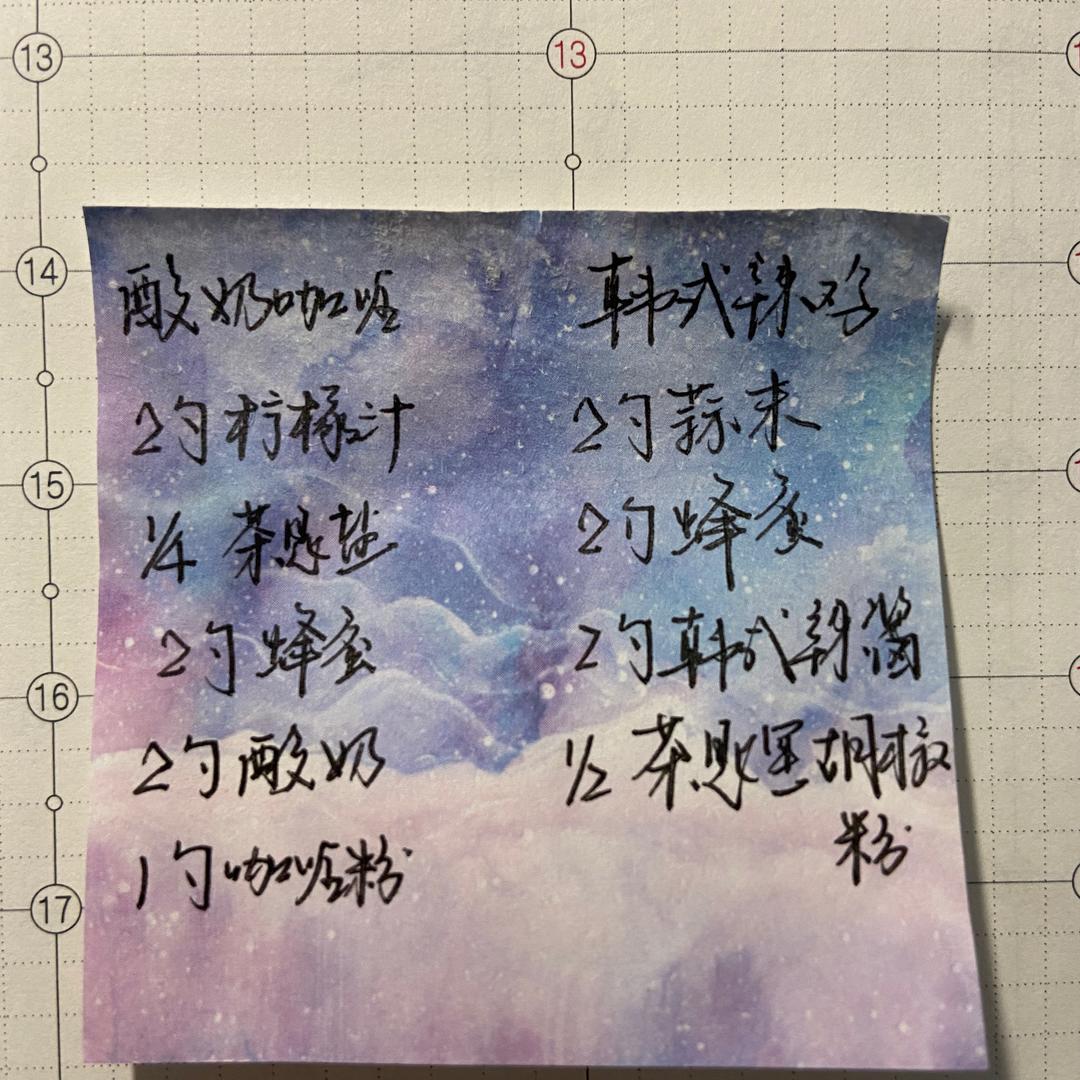 13
13
14
酸奶咖喱
韩式辣鸡
2勺柠檬汁
2勺蒜末
15
1/4 茶匙盐
2勺蜂蜜
2勺蜂蜜
2勺韩式辣酱
16
2勺酸奶
1/2 茶匙黑胡椒
粉
1勺咖喱粉
17